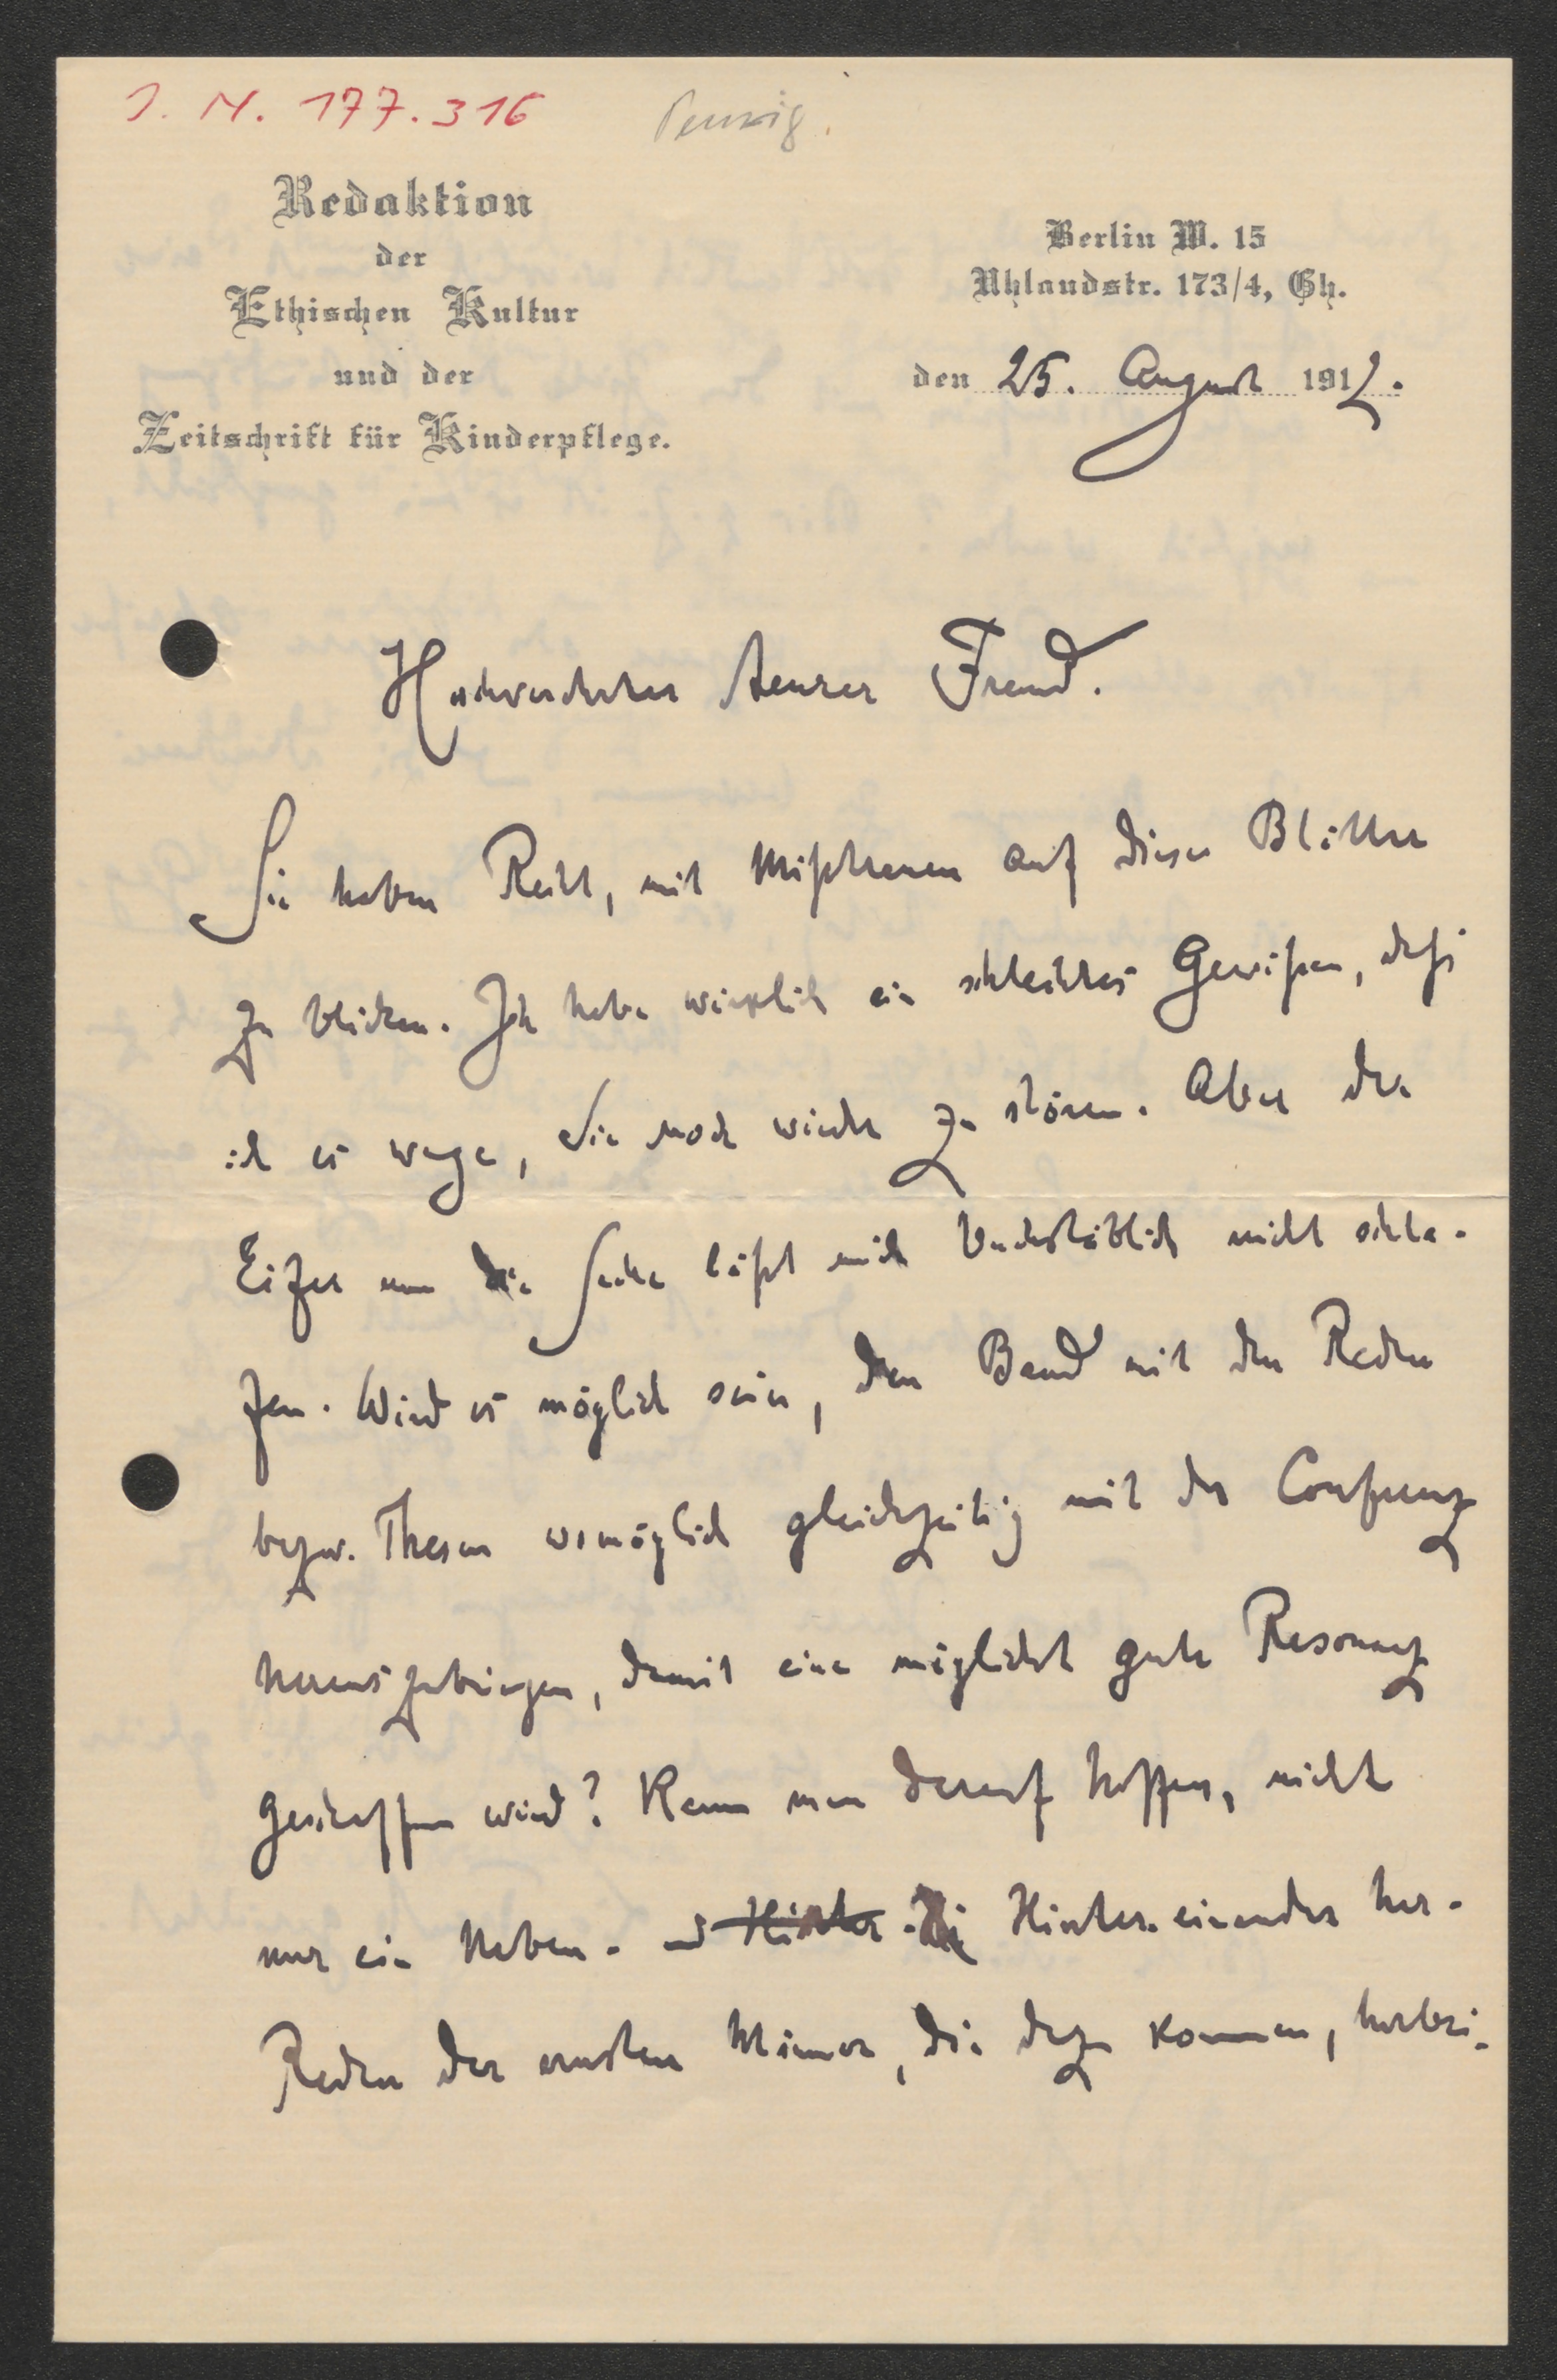 I. N. 177.316
Penzig.
Redaktion
der
Ethischen Kultur
und der
Zeitschrift für Kinderpflege.
Berlin W. 15
Uhlandstr. 173/4, Gh.
den 25. August 1912.
Hochverehrter teurer Freund.
Sie haben Recht, mit Mißtrauen auf diese Blätter
zu blicken. Ich habe wirklich ein schlechtes Gewißen, daß
ich es wage, Sie noch wieder zu stören. Aber der
Eifer um die Sache läßt mich buchstäblich nicht schla-
fen. Wird es möglich sein, den Band mit den Reden
bezw. Thesen womöglich gleichzeitig mit der Conferenz
herauszubringen, damit eine möglichst gute Resonanz
geschaffen wird? Kann man darauf hoffen, nicht
nur ein Neben- und Hinter Hintereinander her-
Reden der ernsten Männer, die dazu kommen, herbei-